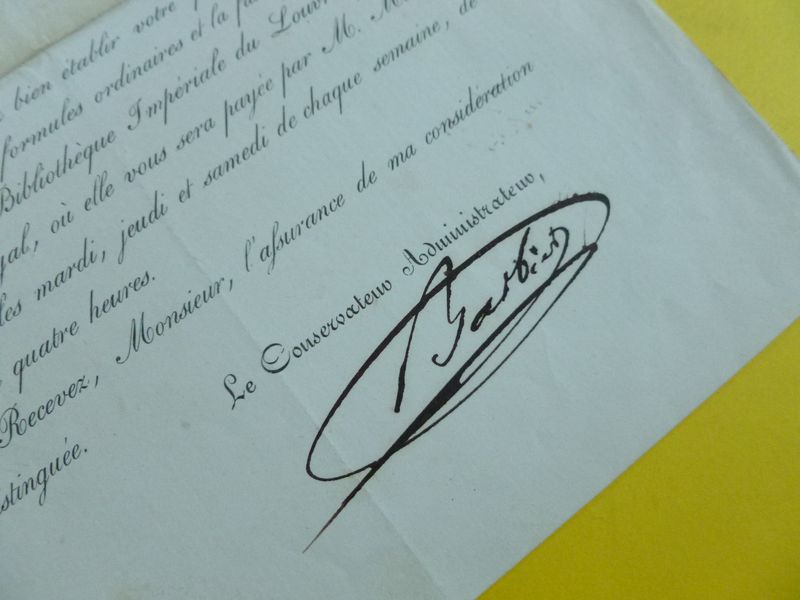 bien établir votre
formules ordinaires et la
Bibliothèque Impériale du Louvr
yal, où elle vous sera payée par M. M
les mardi, jeudi et samedi de chaque semaine, de
quatre heures.
Recevez, Monsieur, l'assurance de ma considération
istinguée.
Le Conservateur Administrateur,
Barbier